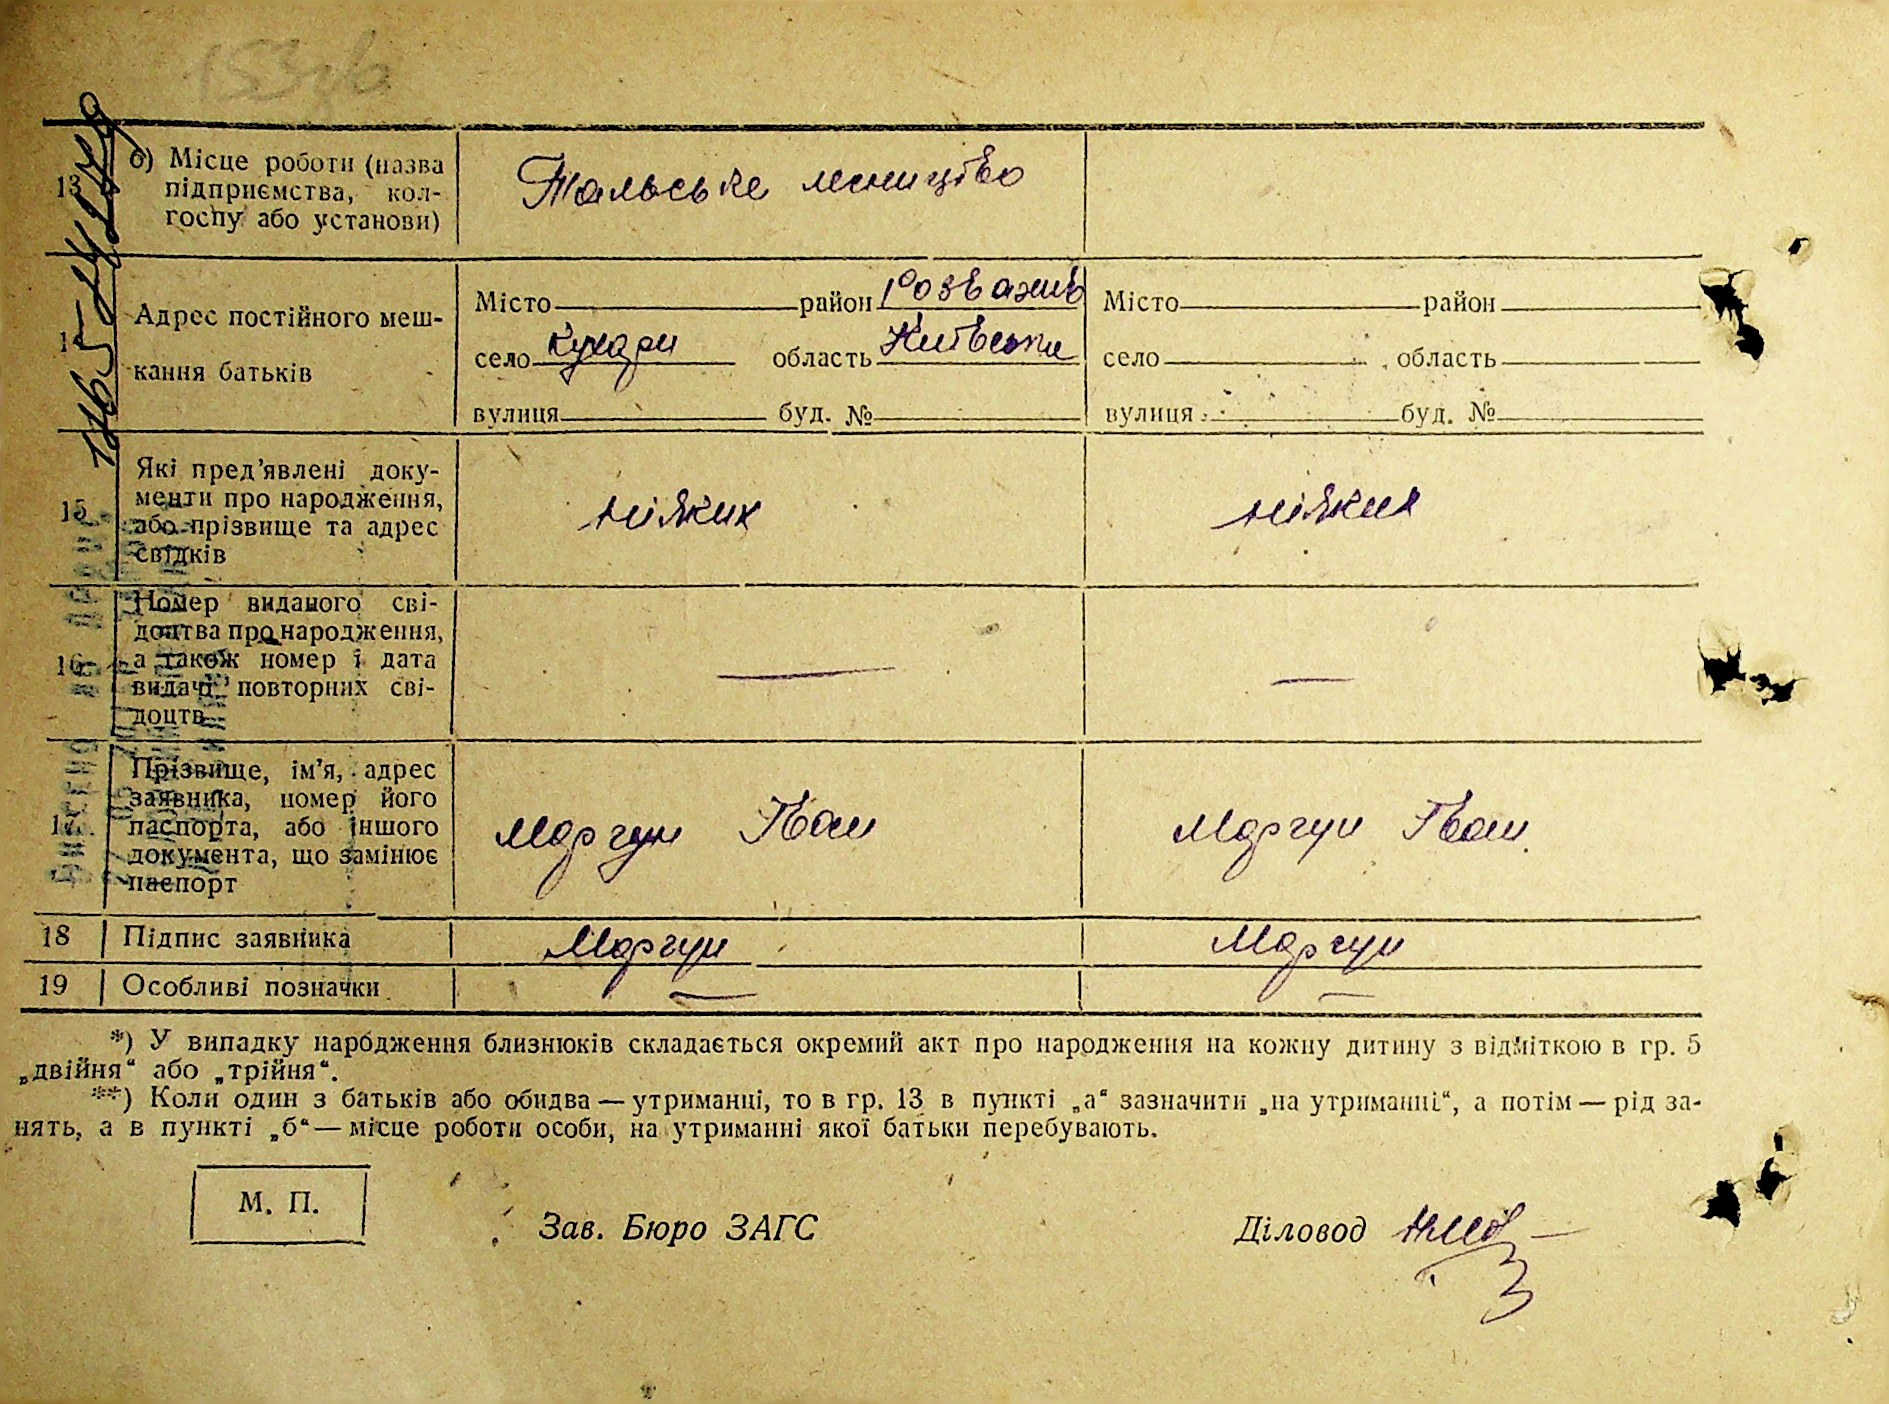 153 зв
б) Місце роботи (назва
13 підприємства, кол-
госпу або установи)
Тальське лісництво
Адрес постійного меш-
кання батьків
Місто район Розважів
село Кухари область Київська
вулиця буд. №
Місто район
село область
вулиця буд. №
Які пред'явлені доку-
15 менти про народження,
або прізвище та адрес
свідків
ніяких ніяких
Номер виданого сві-
доцтва про народження,
16 а також номер і дата
видачі повторних сві-
доцтв
Прізвище, ім'я, адрес
заявника, номер його
17 паспорта, або іншого
документа, що замінює
паспорт
Моргун Іван Моргун Іван
18 Підпис заявника Моргун Моргун
19 Особливі позначки
*) У випадку народження близнюків складається окремий акт про народження на кожну дитину з відміткою в гр. 5
„двійня“ або „трійня“.
**) Коли один з батьків або обидва — утриманці, то в гр. 13 в пункті „а“ зазначити „на утриманні“, а потім — рід за-
нять, а в пункті „б“ — місце роботи особи, на утриманні якої батьки перебувають.
М. П.
Зав. Бюро ЗАГС Діловод